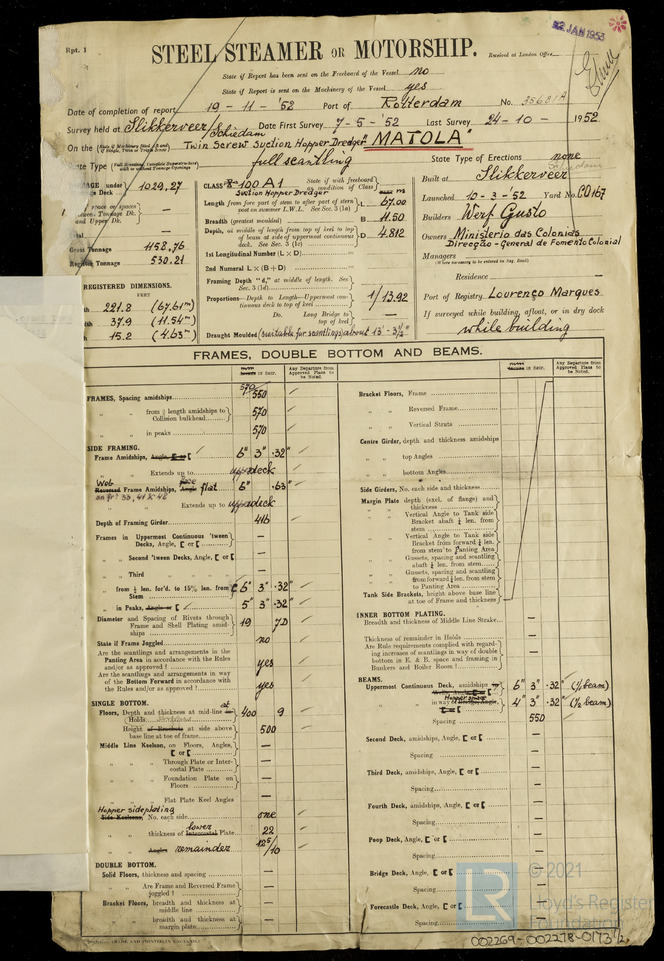 Rpt. 1
22 JAN 1953
STEEL STEAMER OR MOTORSHIP.
Received at London Office
State if Report has been sent on the Freeboard of the Vessel no
State if Report is sent on the Machinery of the Vessel yes
Date of completion of report 19 - 11 - '52 Port of Rotterdam No. 35681A
Survey held at Slikkerveer/Schiedam Date First Survey 7 - 5 - '52 Last Survey 24 - 10 - 1952
On the Twin Screw Suction Hopper Dredger "MATOLA"
State Type full scantling
State Type of Erections none
1029,27
CLASS 100 A1 State if with freeboard as condition of Class
Suction Hopper Dredger
Built at Slikkerveer
Schiedam
Length from fore part of stem to after part of stern post on summer L.W.L. See Sec. 3 (1a) L 67.00
Launched 10 - 3 - '52 Yard No. CO 167
Breadth (greatest moulded) B 11.50
Builders Werf Gusto
Depth, at middle of length from top of keel to top of beam at side of uppermost continuous deck. See Sec. 3 (1c) D 4.812
Owners Ministerio das Colonias
Direcção - General de Fomento Colonial
1st Longitudinal Number (L × D)
Managers
(Where necessary to be entered in Reg. Book)
Gross Tonnage 1152,76
2nd Numeral L × (B + D)
Register Tonnage 530.21
Framing Depth "d," at middle of length. See Sec. 3 (1d)
Residence —
REGISTERED DIMENSIONS.
FEET
Proportions—Depth to Length—Uppermost continuous deck to top of keel 1/13.92
Port of Registry Lourenço Marques
221.8 (67.61m)
Do. Long Bridge to top of keel —
37.9 (11.54m)
If surveyed while building, afloat, or in dry dock
15.2 (4.63m)
Draught Moulded (suitable for scantlings) about 13' - 3½"
while building
FRAMES, DOUBLE BOTTOM AND BEAMS.
Any Departure from Approved Plans to be Noted.
Any Departure from Approved Plans to be Noted.
FRAMES, Spacing amidships 570 550
" " from ⅕ length amidships to Collision bulkhead 570
" " in peaks 570
SIDE FRAMING.
Frame Amidships, 6" 3" .32"
" " Extends up to upperdeck
Web Reversed Frame Amidships, face flat 6" .63"
on fr. 33, 41 & 48
" " Extends up to upperdeck
Depth of Framing Girder 416
Frames in Uppermost Continuous 'tween Decks, Angle, [ or [ —
" " Second 'tween Decks, Angle, [ or [ —
" " Third " " " —
" " from ⅕ len. for'd. to 15% len. from Stem 6" 3" .32"
" " in Peaks, Angle or [ 5" 3" .32"
Diameter and Spacing of Rivets through Frame and Shell Plating amidships 19 7D
State if Frame Joggled no
Are the scantlings and arrangements in the Panting Area in accordance with the Rules and/or as approved? yes
Are the scantlings and arrangements in way of the Bottom Forward in accordance with the Rules and/or as approved? yes
SINGLE BOTTOM.
Floors, Depth and thickness at mid-line in Holds 400 9
Height of Brackets at side above base line at toe of frame 500
Middle Line Keelson, on Floors, Angles, [ or [ —
" " Through Plate or Intercostal Plate —
" " Foundation Plate on Floors —
" " Flat Plate Keel Angles —
Hopper sideplating
Side Keelsons, No. each side one
" " thickness of lower Intercostal Plate 22
" " Angles remainder 12.5/10
DOUBLE BOTTOM.
Solid Floors, thickness and spacing —
" " Are Frame and Reversed Frame joggled? —
Bracket Floors, breadth and thickness at middle line —
" " breadth and thickness at margin plate —
Bracket Floors, Frame
" " Reversed Frame
" " Vertical Struts
Centre Girder, depth and thickness amidships
" " top Angles
" " bottom Angles
Side Girders, No. each side and thickness
Margin Plate depth (excl. of flange) and thickness
" " Vertical Angle to Tank side Bracket abaft ⅕ len. from stem
" " Vertical Angle to Tank side Bracket from forward ⅕ len. from stem to Panting Area
" " Gussets, spacing and scantling abaft ⅕ len. from stem
" " Gussets, spacing and scantling from forward ⅕ len. from stem to Panting Area
Tank Side Brackets, height above base line at toe of Frame and thickness
INNER BOTTOM PLATING.
Breadth and thickness of Middle Line Strake —
Thickness of remainder in Holds —
Are Rule requirements complied with regarding increases of scantlings in way of double bottom in E. & B. space and framing in Bunkers and Boiler Room? —
BEAMS.
Uppermost Continuous Deck, amidships 6" 3" .32" (1/1 beam)
" " in way of Hopper space 4" 3" .32" (½ beam)
Spacing 550
Second Deck, amidships, Angle, [ or [ —
Spacing —
Third Deck, amidships, Angle, [ or [ —
Spacing —
Fourth Deck, amidships, Angle, [ or [ —
Spacing —
Poop Deck, Angle, [ or [ —
Spacing —
Bridge Deck, Angle, [ or [ —
Spacing —
Forecastle Deck, Angle, [ or [ —
Spacing —
© 2021
Lloyd's Register
Foundation
LR
002269-002278-0173 1/2